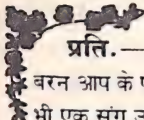 प्रति.—
बरन आप के
भी एक संग